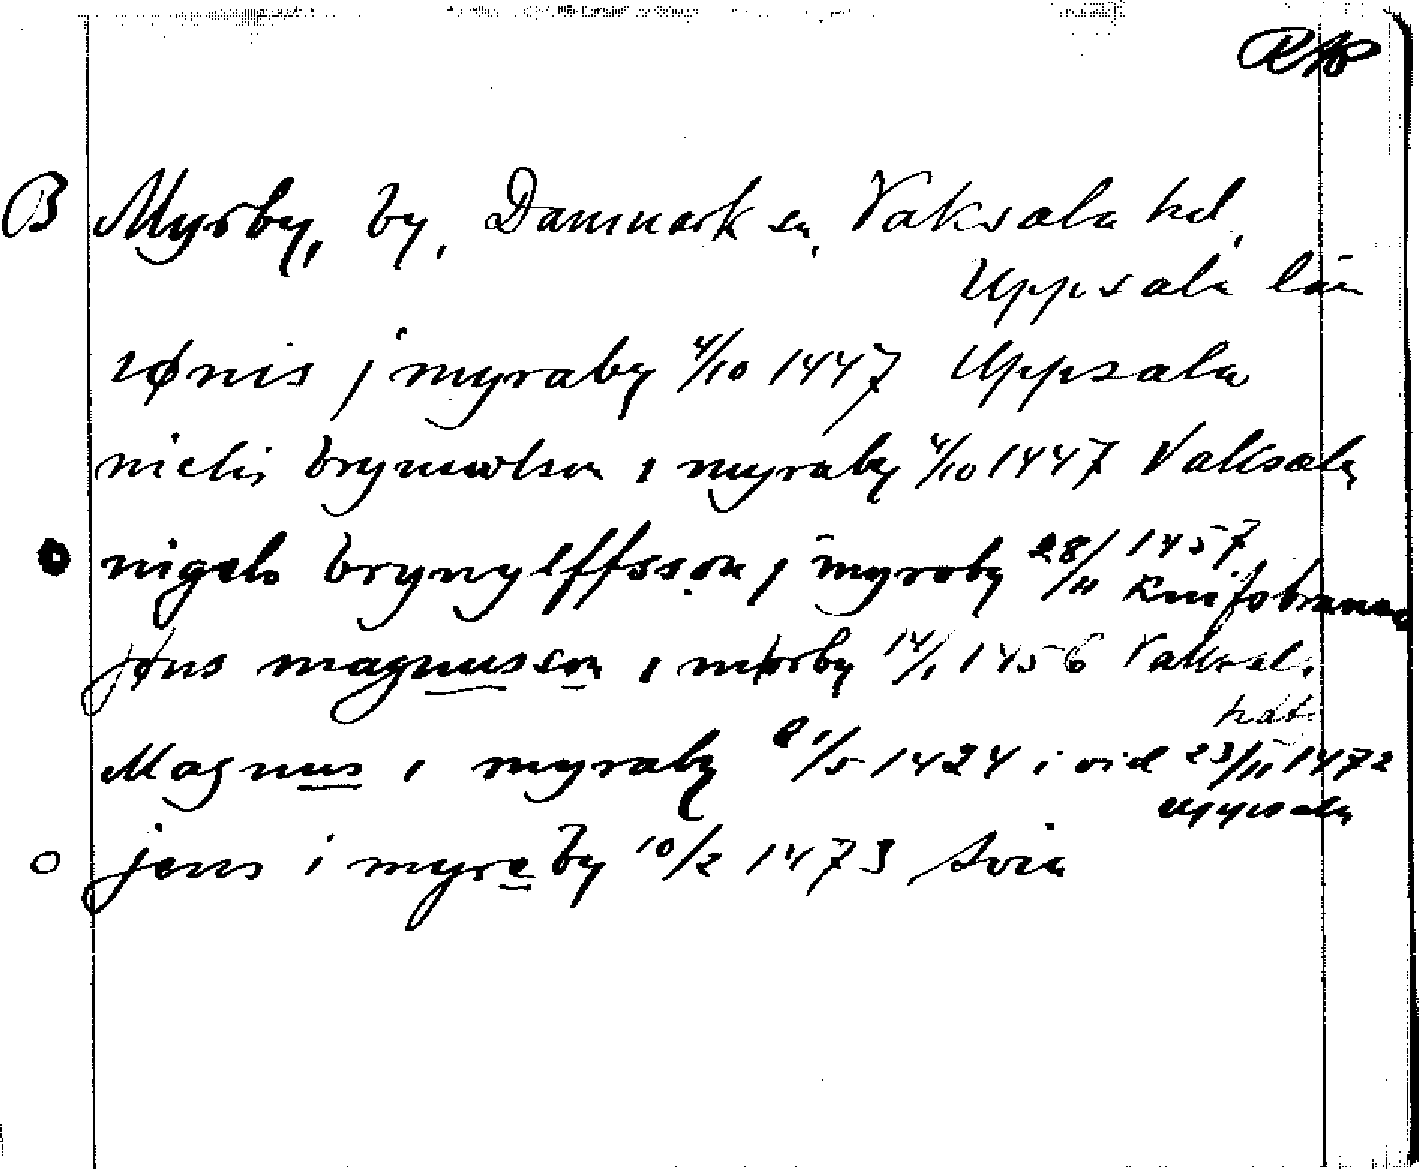 RAP
B Myrby, by, Danmark sn, Vaksala hd,
Uppsala län
rønis j myraby 4/10 1447 Uppsala
nielis i myraby 4/10 1447 Vaksala
nigels brynylffsson j myraby 28/11 1457
jøns magnusson i mørby 14/1 1456 Vaksal.
hdt.
Magnus i myraby 1/5 1424 i vid 23/11 1472
Uppsala
jens i myreby 10/2 1473